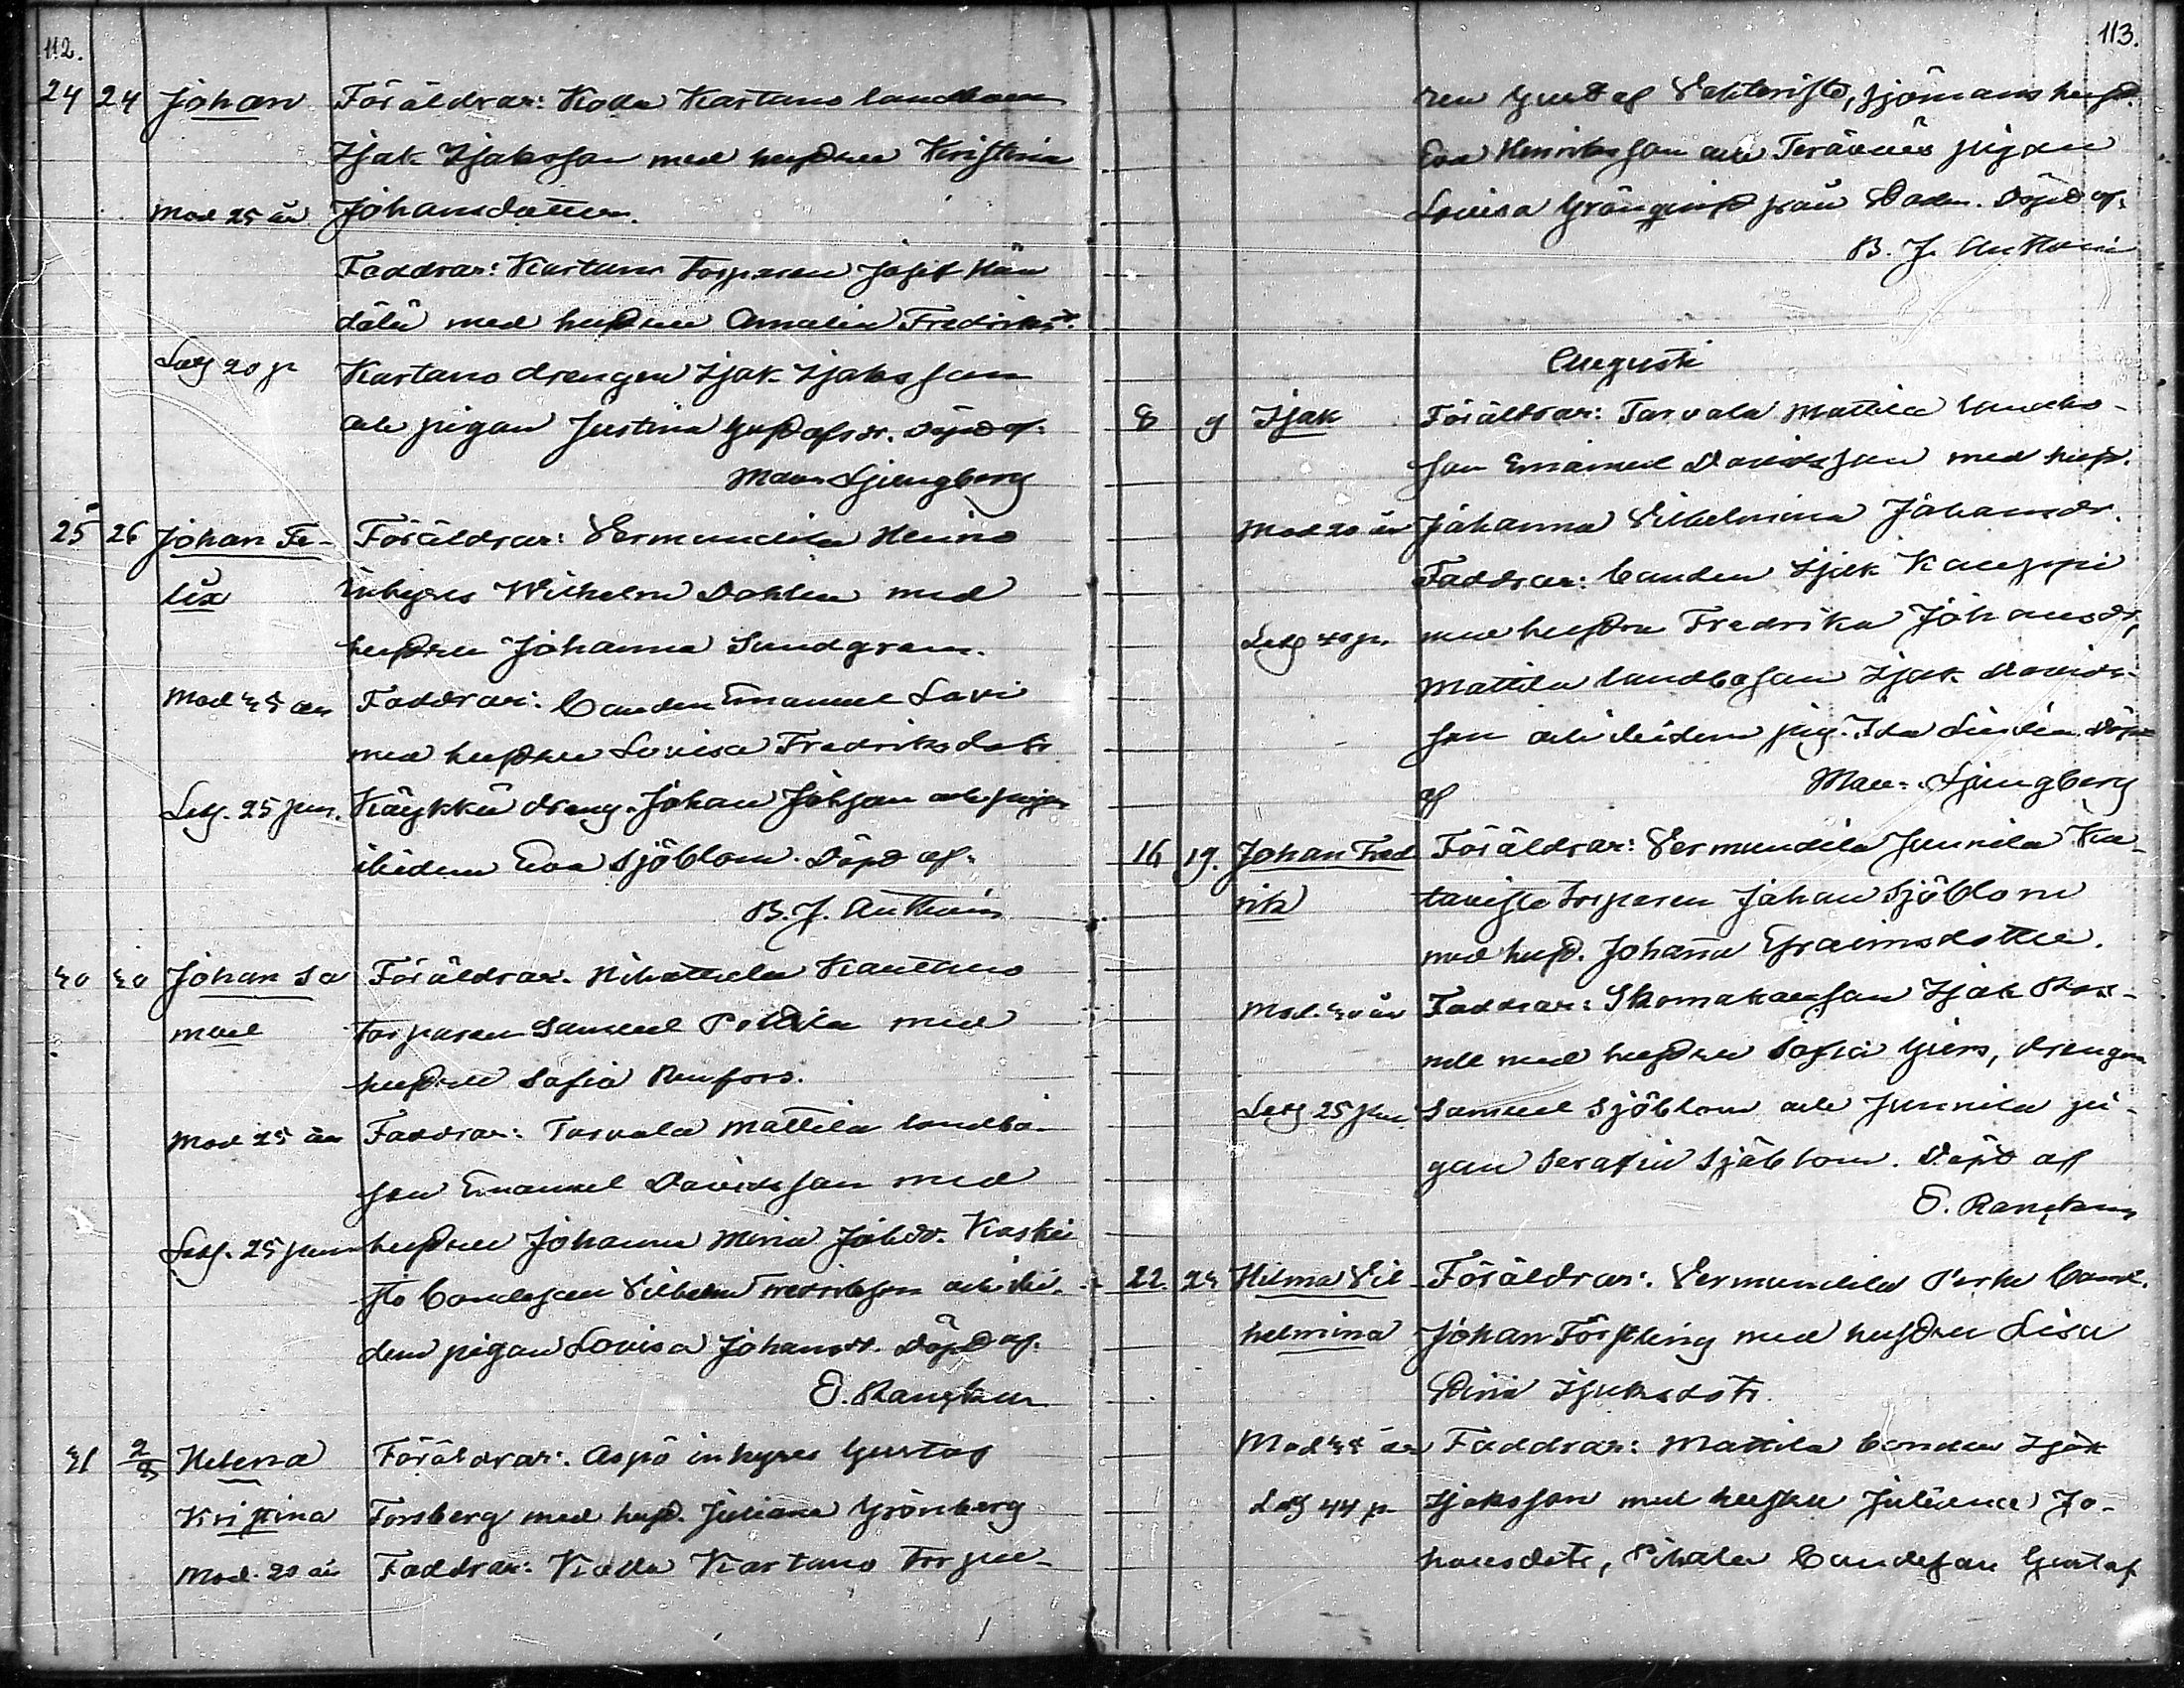 112.
24 24 Johan Föräldrar: Kolla Kartano landboen
Isak Isaksson med hustrun Kristina
Mod 25 år Johansdotter.
Faddrar: Kartano Torparen Josef Hän
dälä med hustrun Amalia Fredriksdr.
Leg 20 p Kartano drengen Isak Isaksson
och pigan Justina Gustafsdr. Döpt af:
Maur. Ljungberg
25 26 Johan Fe- Föräldrar: Vermundila Heino
lix inhyses Wilhelm Dahlen med
hustrun Johanna Sundgren.
Mod 38 år Faddrar: Bonden Emanuel Lavi
med hustrun Lovisa Fredriksdotr
Leg. 25 pen. Käykkä dreng. Johan Johsson och pigan
ibidem Eva Sjöblom. Döpt af:
B. J. Anthoni
30 30 Johan Sa Föräldrar. Hihattula Kauttuo
muel torparen Samuel Pettilä med
hustrun Sofia Renfors.
Mod 25 år Faddrar: Torvala Mattila landbo-
son Emanuel Davidsson med
Leg. 25 penni hustrun Johanna Mina Johdr. Kaski
sto Bondeson Vilhelm Fredriksson och ibi-
dem pigan Lovisa Johansdr. Döpt af.
E. Rancken
31 2/8 Helena Föräldrar: Aspö inhyses Gustaf
Kristina Forsberg med hust. Juliana Grönberg
Mod. 20 år Faddrar: Kolla Kartano Torpa-
113.
ren Gustaf Vehteristo, sjömans hust.
Eva Henriksson och Terävnäs pigan
Lovisa Grönqvist från Staden. Döpt af:
B. J. Anthoni
Augusti
8 9 Isak Föräldrar: Torvala Mattila landbo-
son Emanuel Davidsson med hust.
Mod 20 år Johanna Vilhelmina Johansdr.
Faddrar: bonden Isak Kauppi
Leg 40 p. med hustru Fredrika Johansdr,
Mattila landboson Isak Davids-
son och ibidem pig. Ida Lindén Döpt
af Maur. Ljungberg
16 19. Johan Fred Föräldrar: Vermundila Junnila Ka-
rik tavisto torparen Johan Sjöblom
med hust. Johanna Efraimsdotter.
Mod. 30 år Faddrar: Skomakareson Isak Ros-
nell med hustrun Sofia Giers, drengen
Leg 25 pen Samuel Sjöblom och Junnila pi-
gan Serafia Sjöblom. Döpt af
E. Rancken
22. 23 Hilma Vil Föräldrar: Vermundila Perho bond.
helmina Johan Förstling med hustrun Lisa
Stina Isaksdotr.
Mod 38 år Faddrar: Mattila bonden Isak
Leg 44 p. Isaksson med hustru Juliana Jo-
hansdotr, Pihala Bondeson Gustaf